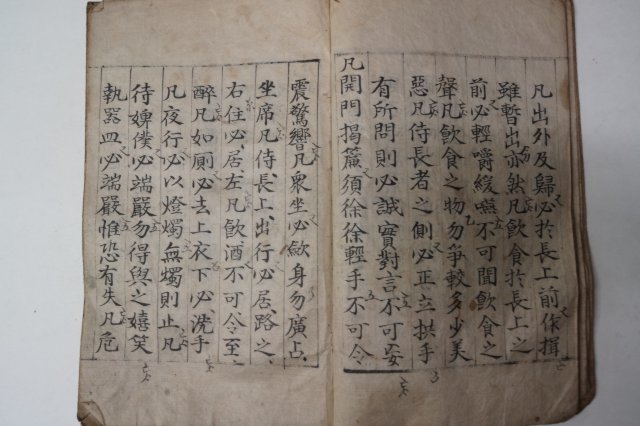 凡出外及歸必於長上前作揖
雖暫出亦然凡飮食於長上之
前必輕嚼緩嚥不可聞飮食之
聲凡飮食之物勿爭較多少美
惡凡侍長者之側必正立拱手
有所問則必誠實對言不可妄
凡開門揭簾須徐徐輕手不可令
震驚響凡衆坐必歛身勿廣占
坐席凡侍長上出行必居路之
右住必居左凡飮酒不可令至
醉凡如厠必去上衣下必洗手
凡夜行必以燈燭無燭則止凡
待婢僕必端嚴勿得與之嬉笑
執器皿必端嚴惟恐有失凡危